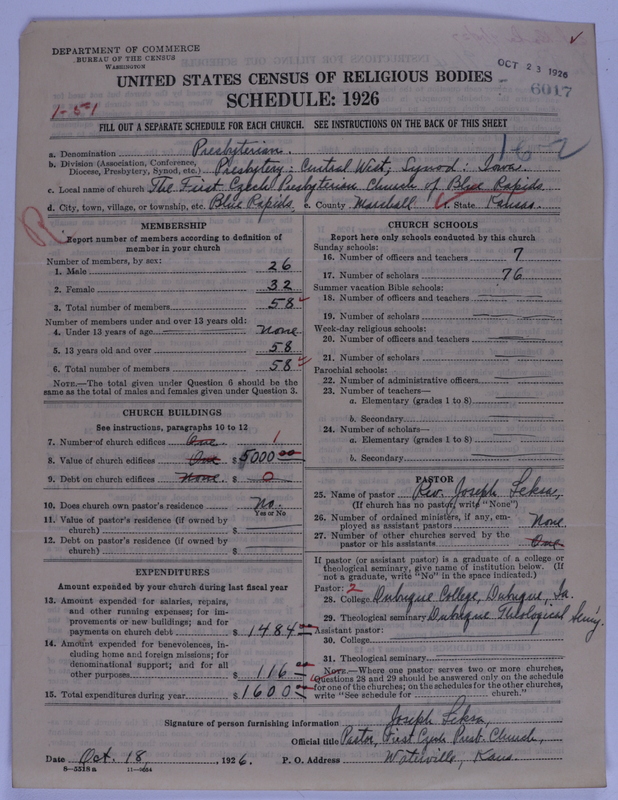 DEPARTMENT OF COMMERCE
BUREAU OF THE CENSUS
WASHINGTON
OCT 23 1926
6017
UNITED STATES CENSUS OF RELIGIOUS BODIES
1-51
SCHEDULE: 1926
FILL OUT A SEPARATE SCHEDULE FOR EACH CHURCH. SEE INSTRUCTIONS ON THE BACK OF THIS SHEET
162
a. Denomination Presbyterian.
b. Division (Association, Conference, Diocese, Presbytery, Synod, etc.) Presbytery: Central West; Synod: Iowa
c. Local name of church The First Czech Presbyterian Church of Blue Rapids
d. City, town, village, or township, etc. Blue Rapids e. County Marshall f. State Kansas.
R
MEMBERSHIP
Report number of members according to definition of
member in your church
Number of members, by sex:
1. Male 26
2. Female 32
3. Total number of members 58
Number of members under and over 13 years old:
4. Under 13 years of age None
5. 13 years old and over 58
6. Total number of members 58
NOTE.—The total given under Question 6 should be the
same as the total of males and females given under Question 3.
CHURCH BUILDINGS
See instructions, paragraphs 10 to 12
7. Number of church edifices One 1
8. Value of church edifices One $5000.00
9. Debt on church edifices None $ 0
10. Does church own pastor's residence No.
Yes or No
11. Value of pastor's residence (if owned by
church) $
12. Debt on pastor's residence (if owned by
church) $
EXPENDITURES
Amount expended by your church during last fiscal year
13. Amount expended for salaries, repairs,
and other running expenses; for im-
provements or new buildings; and for
payments on church debt $ 1484.00
14. Amount expended for benevolences, in-
cluding home and foreign missions; for
denominational support; and for all
other purposes $ 116.00
15. Total expenditures during year $ 1600.00
CHURCH SCHOOLS
Report here only schools conducted by this church
Sunday schools:
16. Number of officers and teachers 7
17. Number of scholars 76
Summer vacation Bible schools:
18. Number of officers and teachers
19. Number of scholars
Week-day religious schools:
20. Number of officers and teachers
21. Number of scholars
Parochial schools:
22. Number of administrative officers
23. Number of teachers—
a. Elementary (grades 1 to 8)
b. Secondary
24. Number of scholars—
a. Elementary (grades 1 to 8)
b. Secondary
PASTOR
25. Name of pastor Rev. Joseph Leksa,
(If church has no pastor, write "None")
26. Number of ordained ministers, if any, em-
ployed as assistant pastors None
27. Number of other churches served by the
pastor or his assistants One
If pastor (or assistant pastor) is a graduate of a college or
theological seminary, give name of institution below. (If
not a graduate, write "No" in the space indicated.)
Pastor: 2
28. College Dubuque College, Dubuque, Ia.
29. Theological seminary Dubuque Theological Sem'y.
Assistant pastor:
30. College
31. Theological seminary
NOTE.—Where one pastor serves two or more churches,
Questions 28 and 29 should be answered only on the schedule
for one of the churches; on the schedules for the other churches,
write "See schedule for church."
Signature of person furnishing information Joseph Leksa,
Official title Pastor, First Czech Presb. Church,
Date Oct. 18, 1926. P. O. Address Waterville, Kans.
8—5518 a 11—9664